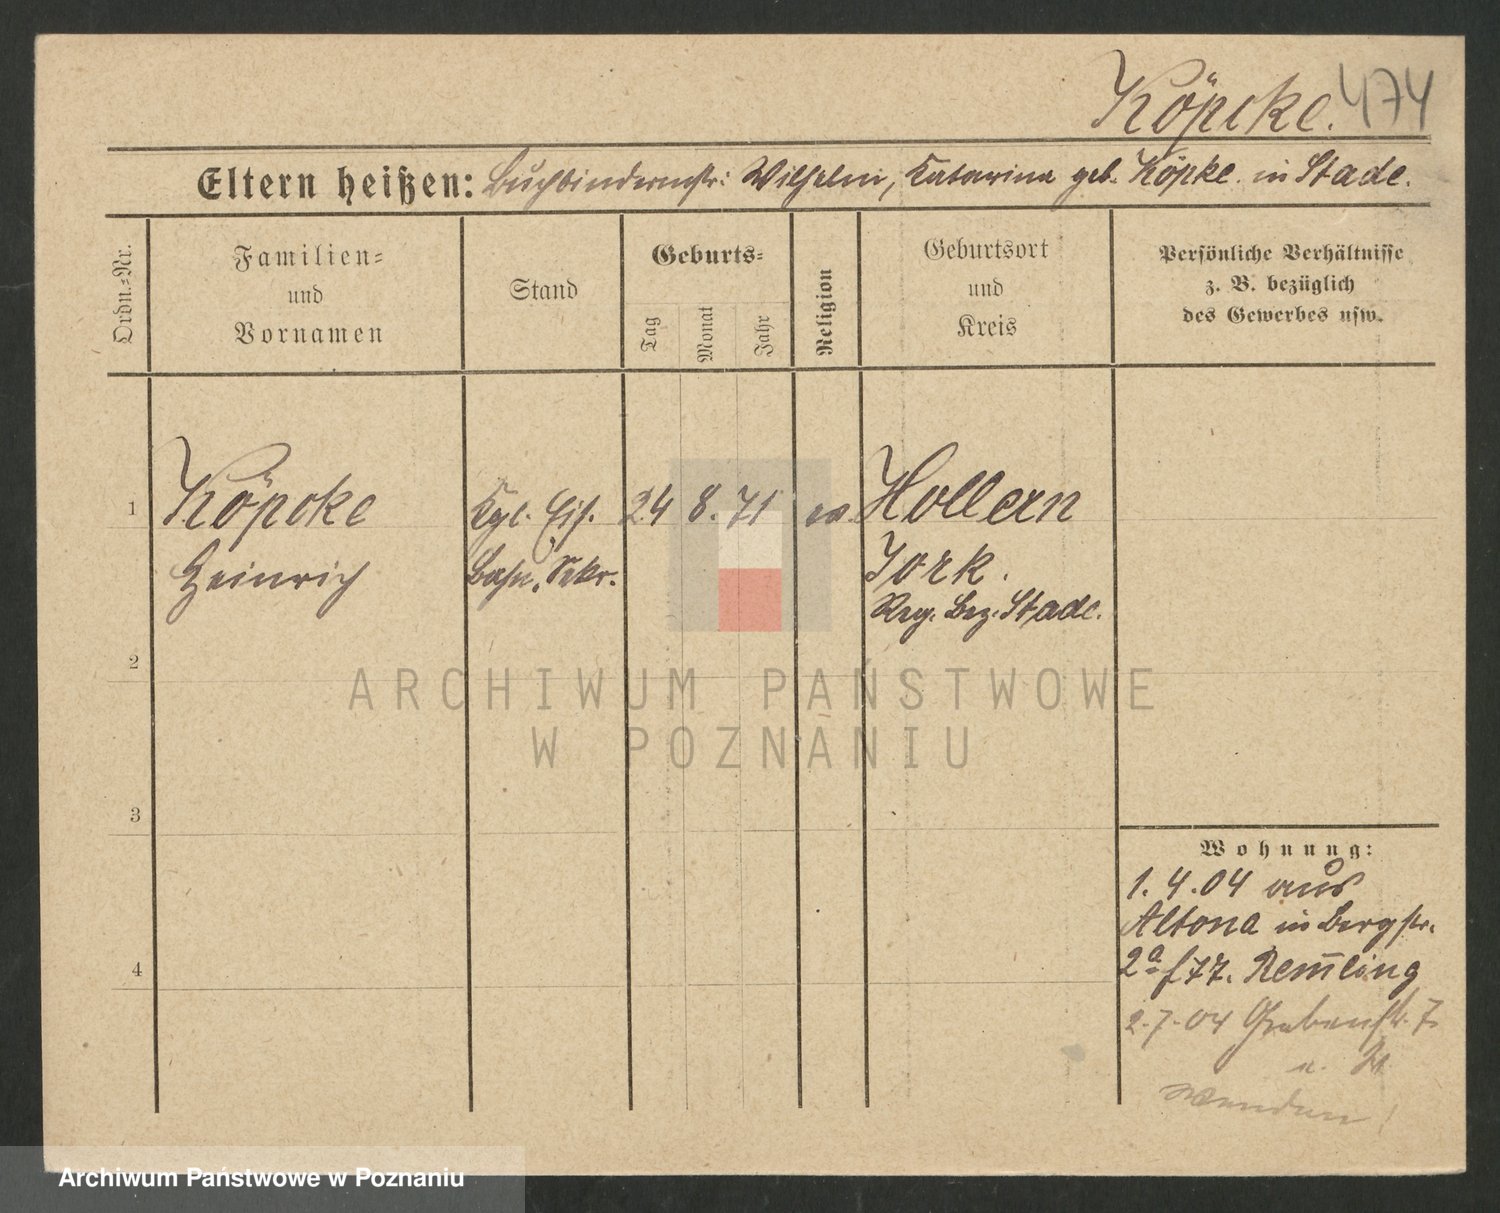 Köpcke. 474
Eltern heißen: Buchbindermstr: Wilhelm, Katarina geb. Köpke in Stade.
Ordn.-Nr.
Familien-
und
Vornamen
Stand
Geburts-
Tag
Monat
Jahr
Religion
Geburtsort
und
Kreis
Persönliche Verhältnisse
z. B. bezüglich
des Gewerbes usw.
1
Köpcke
Heinrich
Kgl. Eis.
Bahn. Sekr.
24 8. 71
ev.
Hollern
Jork.
Reg. Bez. Stade.
2
3
4
Wohnung:
1. 4. 04 aus
Altona in Bergstr.
2a f 77. Remling
2.7.04 Grabenstr. 7.
u.
Wenden!
ARCHIWUM PAŃSTWOWE
W POZNANIU
Archiwum Państwowe w Poznaniu